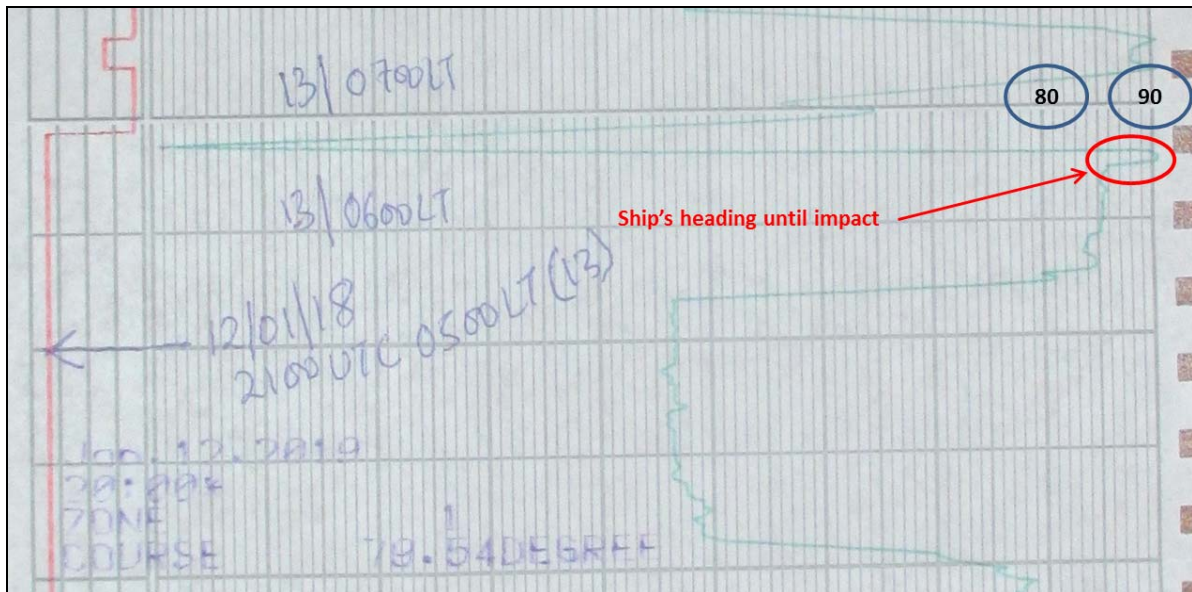 13/0700LT
80
90
13/0600LT
Ship's heading until impact
12/01/18
2100UTC 0500LT (13)
Jan.12.2018
ZONE 1
COURSE 79.54DEGREE